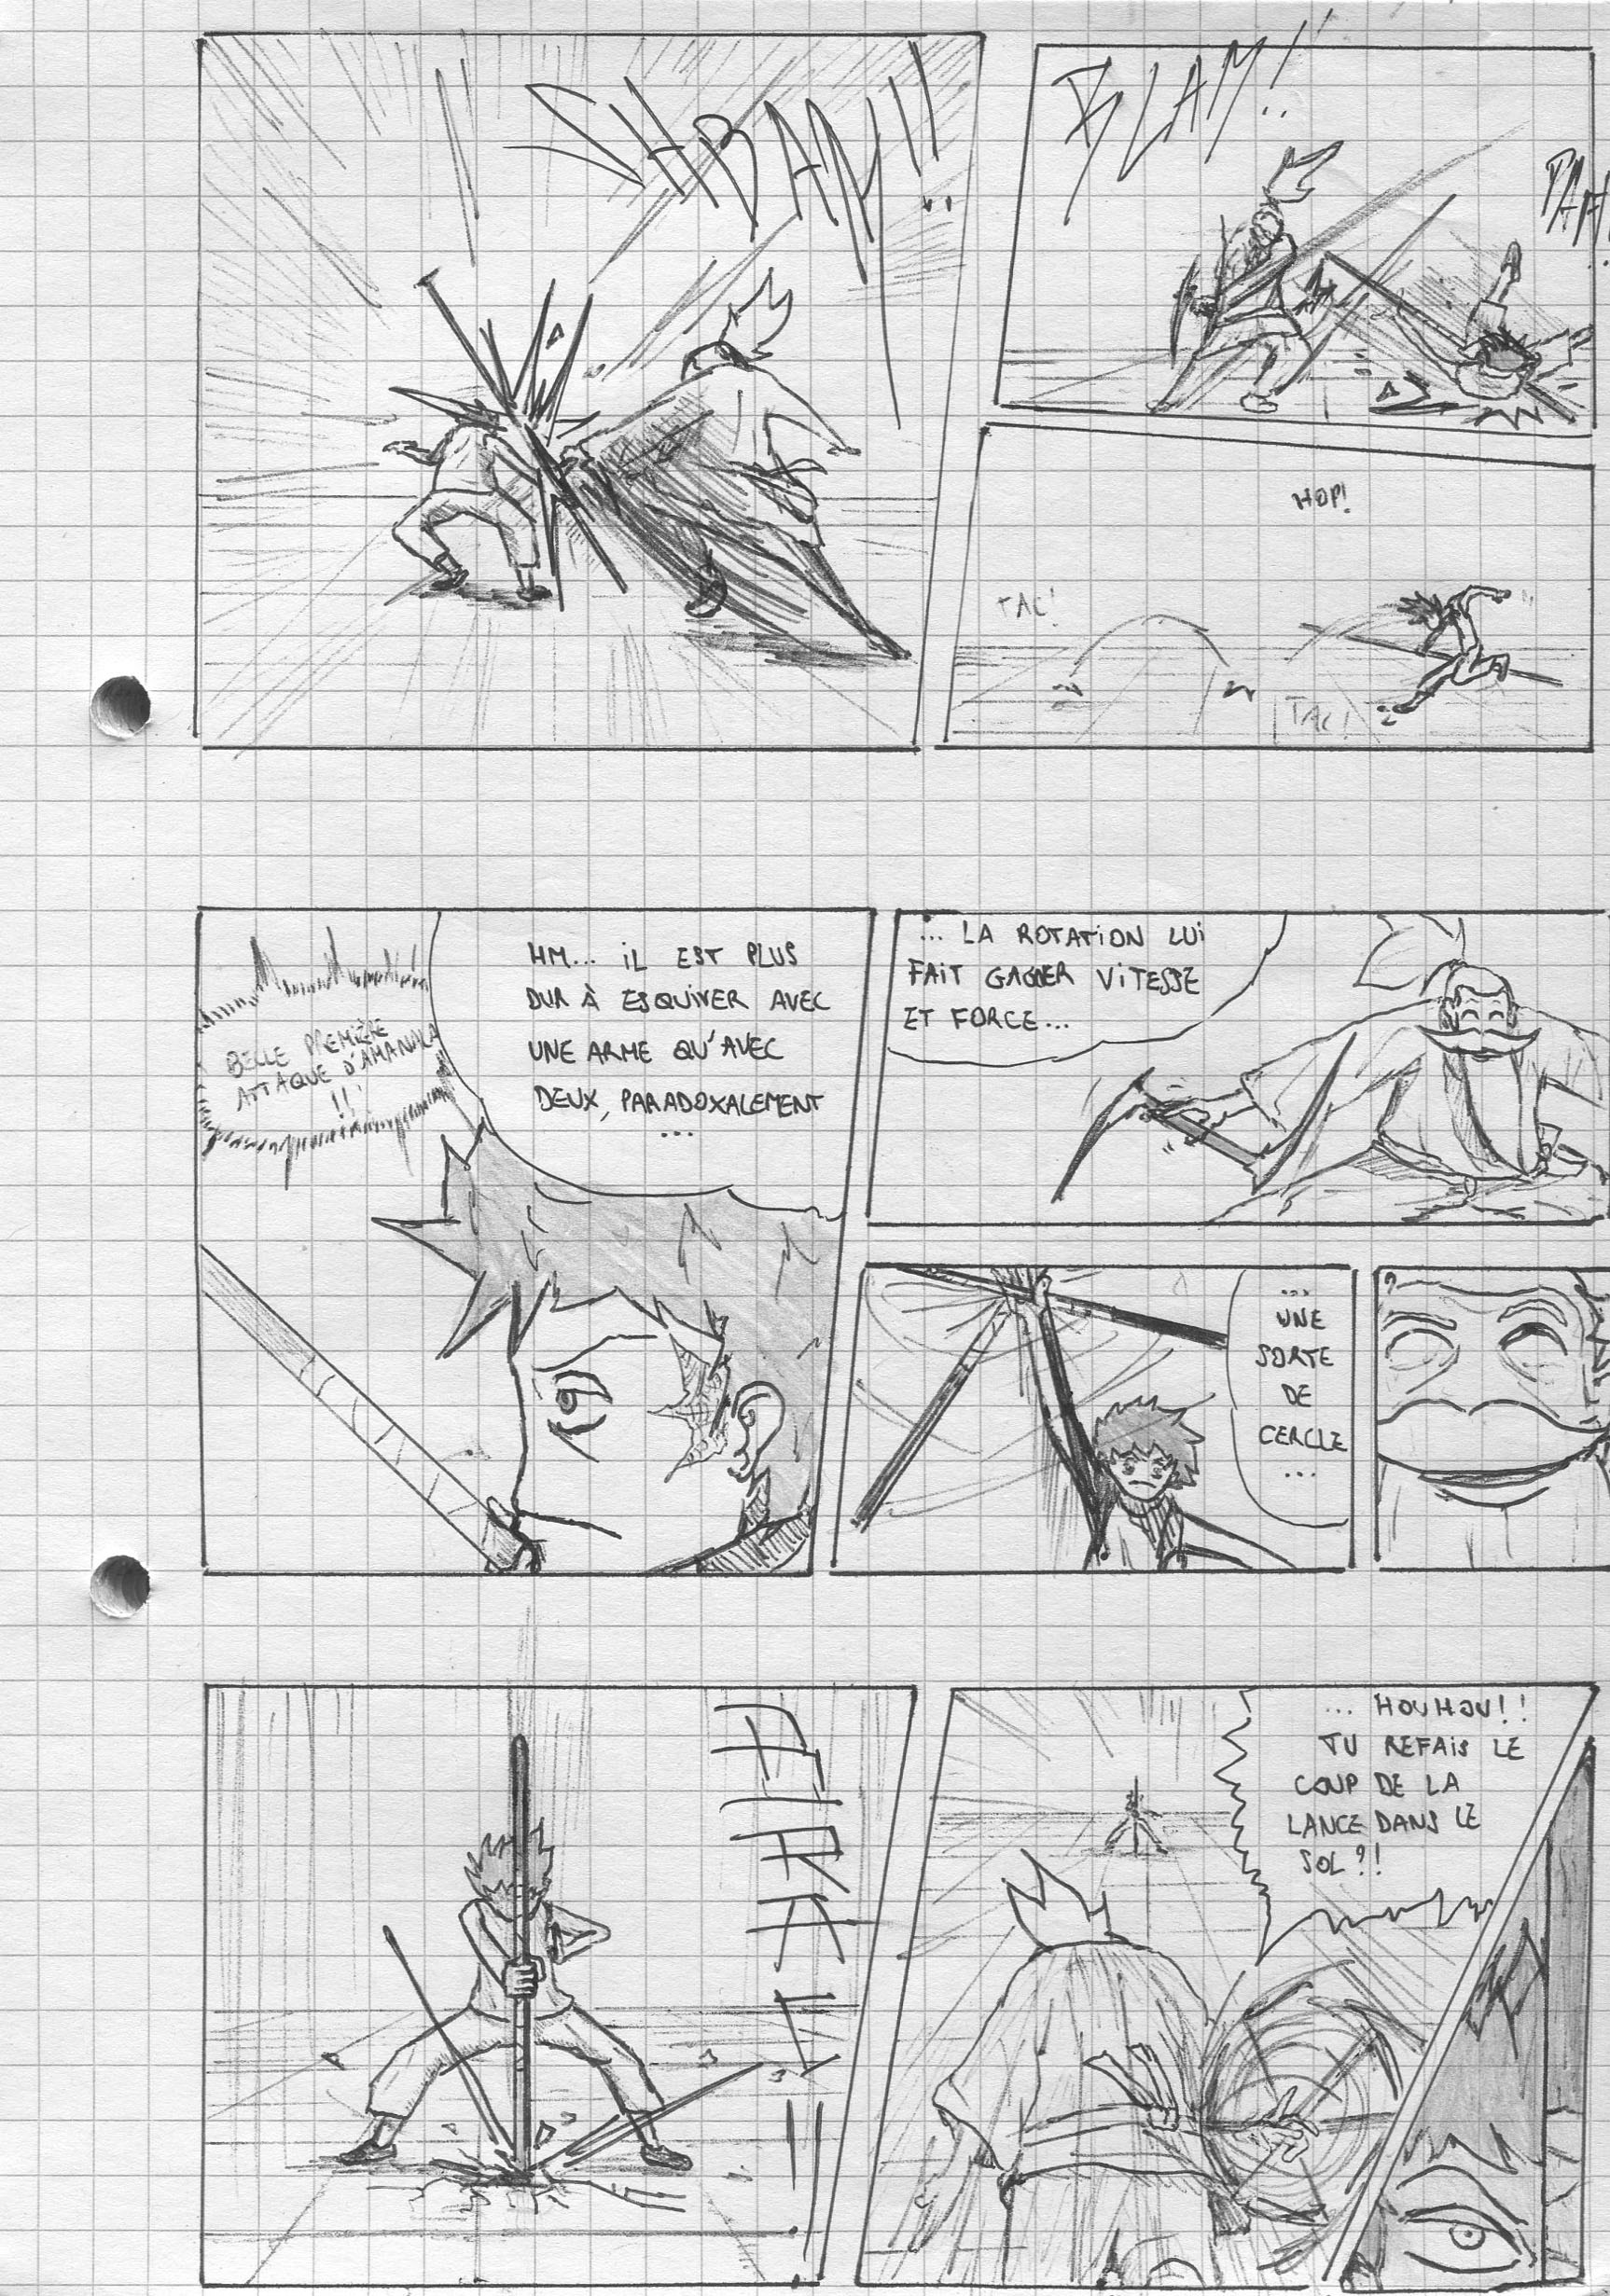 SHBAM!!
BLAM!!
PAF!
HOP!
TAC!
TAC!
BELLE PREMIÈRE
ATTAQUE D'AMANALA
!!
HM... IL EST PLUS
DUR À ESQUIVER AVEC
UNE ARME QU'AVEC
DEUX, PARADOXALEMENT
...
... LA ROTATION LUI
FAIT GAGNER VITESSE
ET FORCE...
...
UNE
SORTE
DE
CERCLE
...
?
... HOUHOU!!
TU REFAIS LE
COUP DE LA
LANCE DANS LE
SOL?!